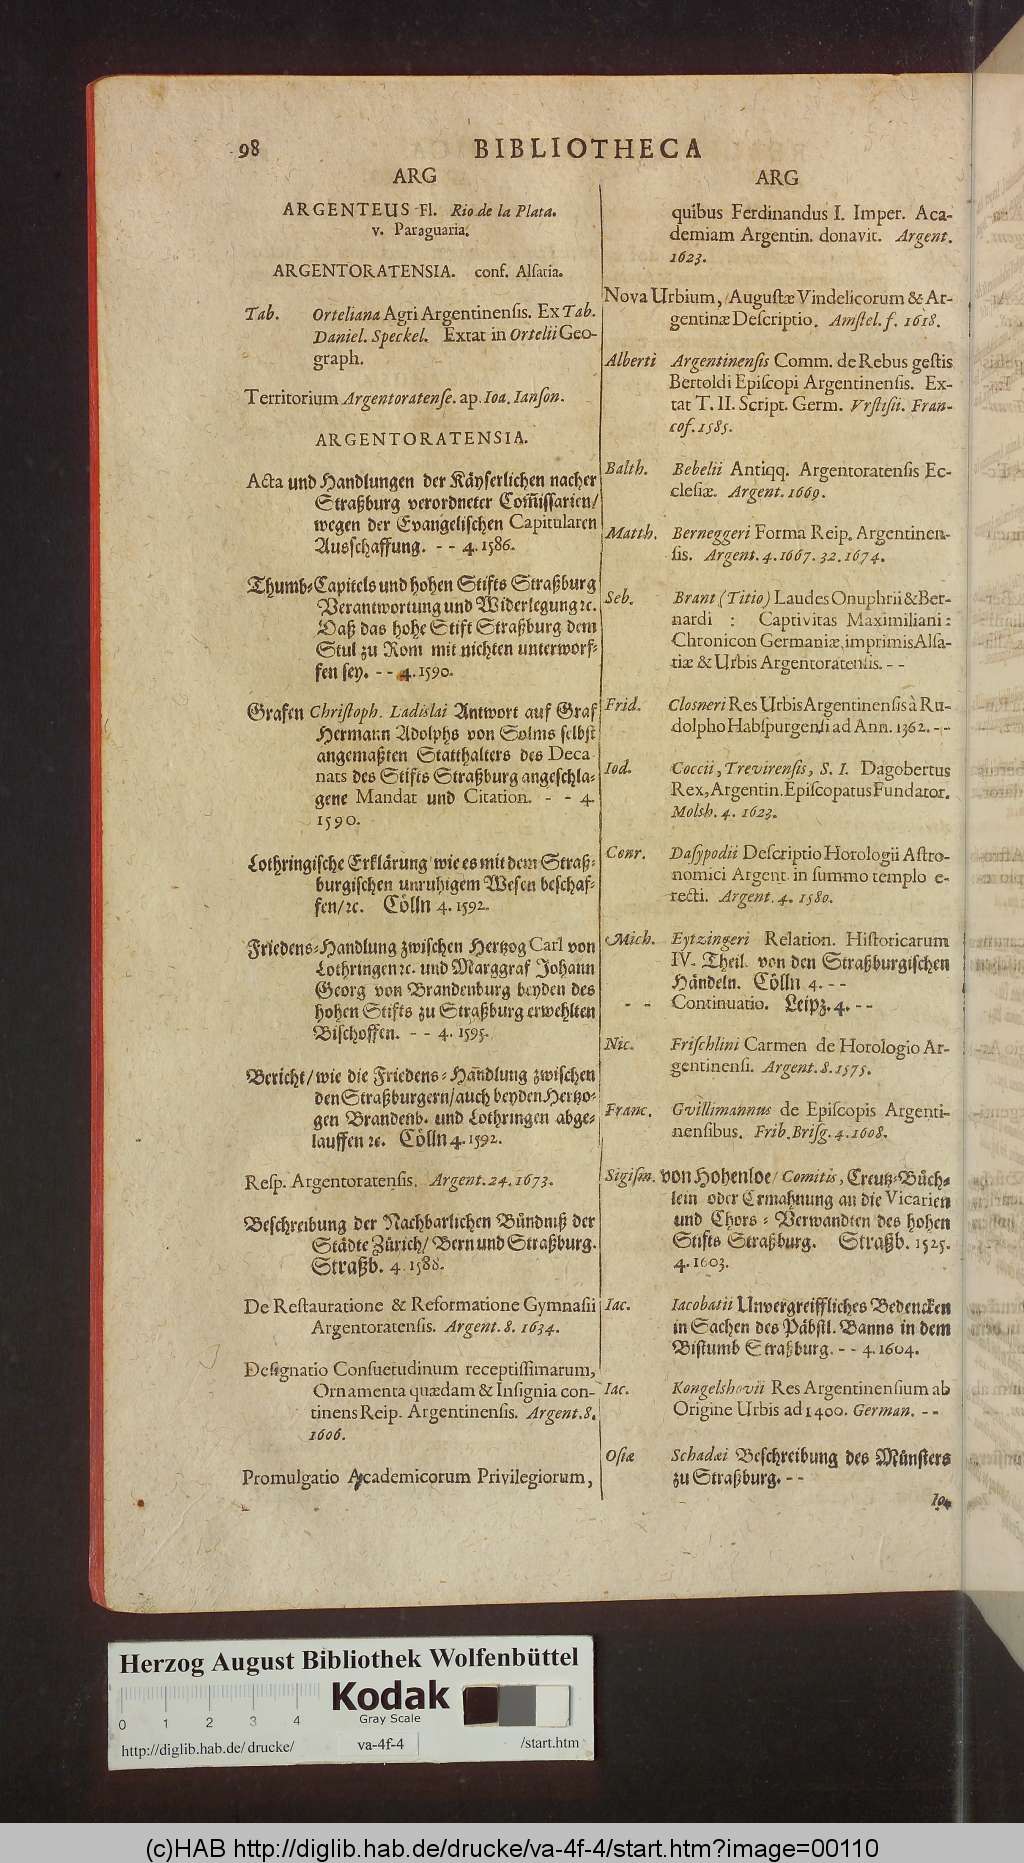 98
BIBLIOTHECA
ARG
ARGENTEUS Fl. Rio de la Plata.
v. Paraguaria.
ARGENTORATENSIA. conf. Alſatia.
Tab. Orteliana Agri Argentinenſis. Ex Tab.
Daniel. Speckel. Extat in Ortelii Geo-
graph.
Territorium Argentoratenſe. ap. Ioa. Ianſon.
ARGENTORATENSIA.
Acta und Handlungen der Käyſerlichen nacher
Straßburg verordneter Com̃iſſarien/
wegen der Evangeliſchen Capitularen
Ausſchaffung. - - 4. 1586.
Thumb-Capitels und hohen Stifts Straßburg
Verantwortung und Widerlegung ꝛc.
Daß das hohe Stift Straßburg dem
Stul zu Rom mit nichten unterworf-
fen ſey. - - 4. 1590.
Grafen Chriſtoph. Ladislai Antwort auf Graf
Hermann Adolphs von Solms ſelbſt
angemaßten Statthalters des Deca
nats des Stifts Straßburg angeſchla-
gene Mandat und Citation. - - 4.
1590.
Lothringiſche Erklärung wie es mit dem Straß-
burgiſchen unruhigem Weſen beſchaf-
fen/ꝛc. Cölln 4. 1592.
Friedens-Handlung zwiſchen Hertzog Carl von
Lothringen ꝛc. und Marggraf Johann
Georg von Brandenburg beyden des
hohen Stifts zu Straßburg erwehlten
Biſchoffen. - - 4. 1595.
Bericht/wie die Friedens-Handlung zwiſchen
den Straßburgern/auch beyden Hertzo-
gen Brandenb. und Lothringen abge-
lauffen ꝛc. Cölln 4. 1592.
Reſp. Argentoratenſis. Argent. 24. 1673.
Beſchreibung der Nachbarlichen Bündniß der
Städte Zürich/ Bern und Straßburg.
Straßb. 4. 1588.
De Reſtauratione & Reformatione Gymnaſii
Argentoratenſis. Argent. 8. 1634.
Deſignatio Conſuetudinum receptiſſimarum,
Ornamenta quædam & Inſignia con-
tinens Reip. Argentinenſis. Argent. 8.
1606.
Promulgatio Academicorum Privilegiorum,
ARG
quibus Ferdinandus I. Imper. Aca-
demiam Argentin. donavit. Argent.
1623.
Nova Urbium, Auguſtæ Vindelicorum & Ar-
gentinæ Deſcriptio. Amſtel. f. 1618.
Alberti Argentinenſis Comm. de Rebus geſtis
Bertoldi Epiſcopi Argentinenſis. Ex-
tat T. II. Script. Germ. Vrſtiſii. Fran-
cof. 1585.
Balth. Bebelii Antiqq. Argentoratenſis Ec-
cleſiæ. Argent. 1669.
Matth. Berneggeri Forma Reip. Argentinen-
ſis. Argent. 4. 1667. 32. 1674.
Seb. Brant (Titio) Laudes Onuphrii & Ber-
nardi : Captivitas Maximiliani :
Chronicon Germaniæ, imprimis Alſa-
tiæ & Urbis Argentoratenſis. - -
Frid. Closneri Res Urbis Argentinenſis à Ru-
dolpho Habſpurgenſi ad Ann. 1362. - -
Iod. Coccii, Trevirenſis, S. I. Dagobertus
Rex, Argentin. Epiſcopatus Fundator.
Molsh. 4. 1623.
Conr. Daſypodii Deſcriptio Horologii Aſtro-
nomici Argent. in ſummo templo e-
recti. Argent. 4. 1580.
Mich. Eytzingeri Relation. Hiſtoricarum
IV. Theil von den Straßburgiſchen
Händeln. Cölln 4. - -
- - Continuatio. Leipz. 4. - -
Nic. Friſchlini Carmen de Horologio Ar-
gentinenſi. Argent. 8. 1575.
Franc. Gvillimannus de Epiſcopis Argenti-
nenſibus. Frib. Briſg. 4. 1608.
Sigiſm. von Hohenloe/ Comitis, Creutz-Büch-
lein oder Ermahnung an die Vicarien
und Chors-Verwandten des hohen
Stifts Straßburg. Straßb. 1525.
4. 1603.
Iac. Iacobatii Unvergreiffliches Bedencken
in Sachen des Päbſtl. Banns in dem
Bistumb Straßburg. - - 4. 1604.
Iac. Kongelshovii Res Argentinenſium ab
Origine Urbis ad 1400. German. - -
Oſiæ Schadæi Beſchreibung des Münſters
zu Straßburg. - -
Io.
Herzog August Bibliothek Wolfenbüttel
Kodak
Gray Scale
0 1 2 3 4
http://diglib.hab.de/drucke/ va-4f-4 /start.htm
(c)HAB http://diglib.hab.de/drucke/va-4f-4/start.htm?image=00110